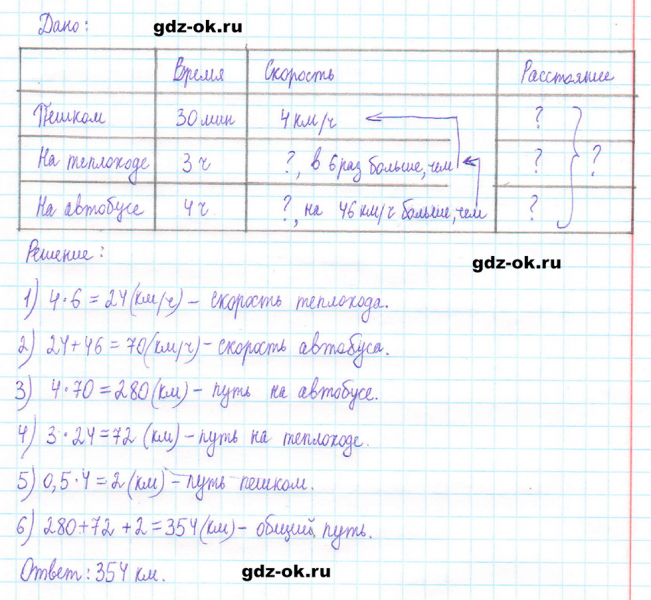 Дано:
gdz-ok.ru
Время Скорость Расстояние
Пешком 30 мин 4 км/ч ?
На теплоходе 3 ч ?, в 6 раз больше, чем ? ?
На автобусе 4 ч ?, на 46 км/ч больше, чем ?
Решение:
gdz-ok.ru
1) 4·6=24 (км/ч) – скорость теплохода.
2) 24+46=70 (км/ч) – скорость автобуса.
3) 4·70=280 (км) – путь на автобусе.
4) 3·24=72 (км) – путь на теплоходе.
5) 0,5·4=2 (км) – путь пешком.
6) 280+72+2=354 (км) – общий путь.
Ответ: 354 км.
gdz-ok.ru